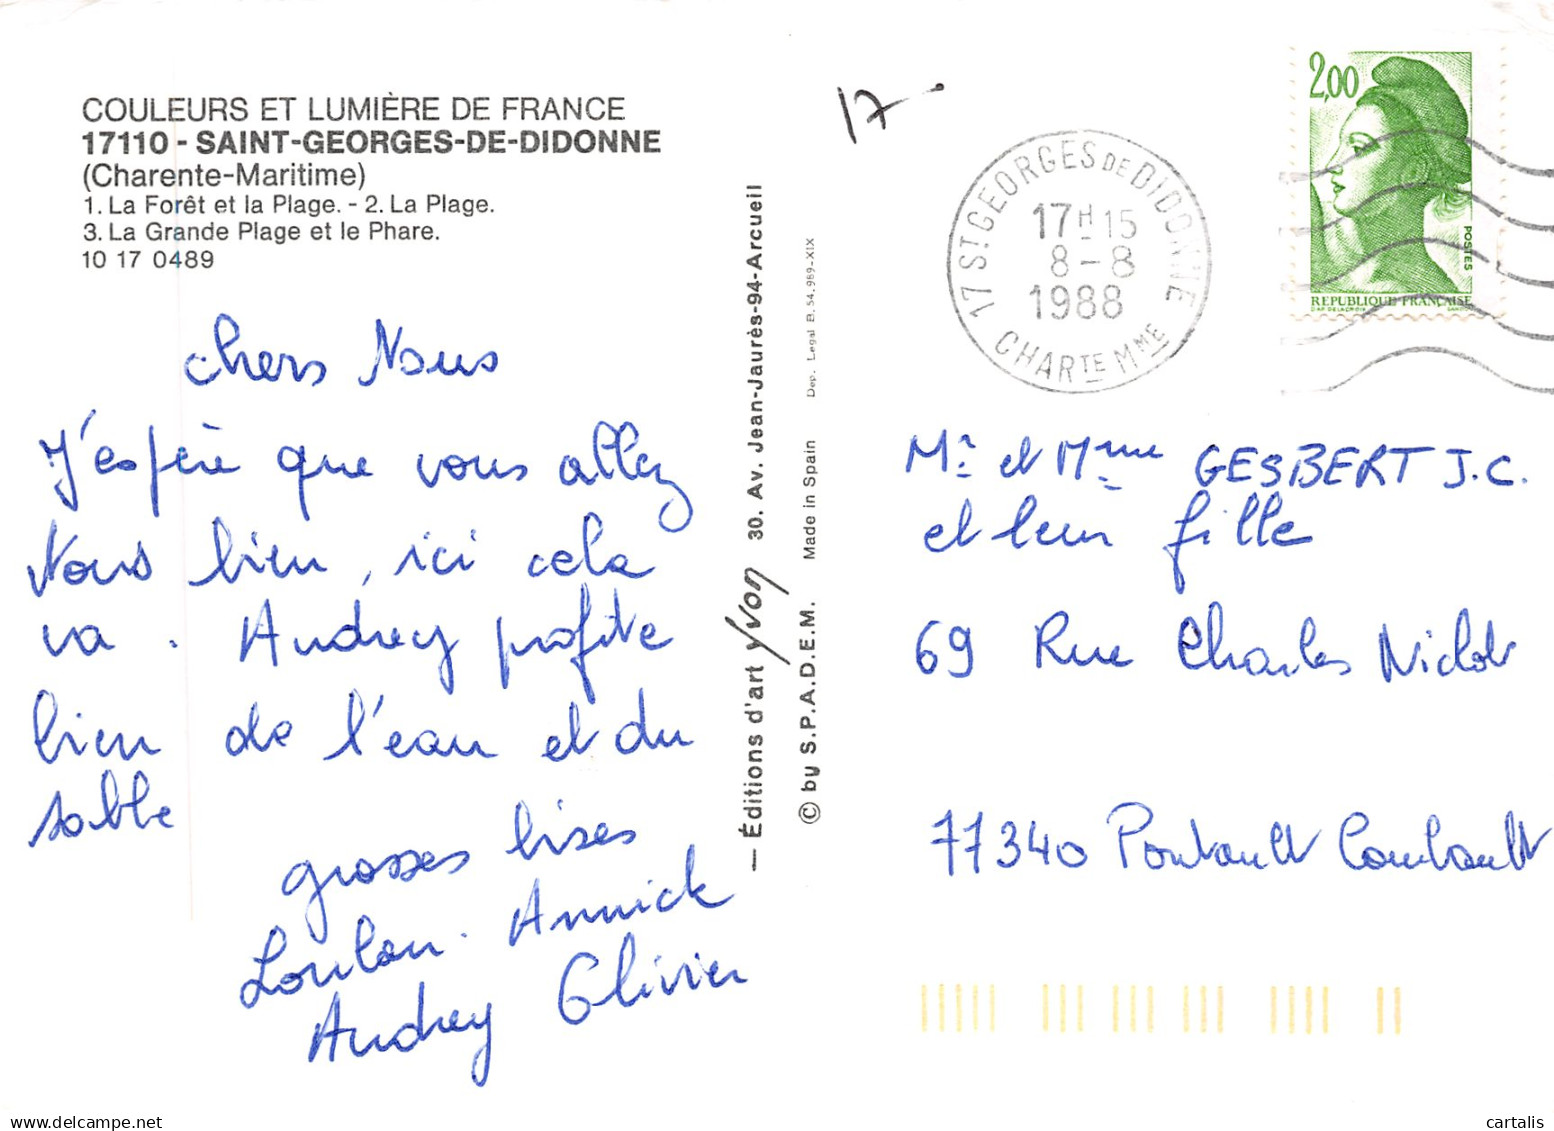 COULEURS ET LUMIÈRE DE FRANCE
17110 - SAINT-GEORGES-DE-DIDONNE
(Charente-Maritime)
1. La Forêt et la Plage. - 2. La Plage.
3. La Grande Plage et le Phare.
10 17 0489
chers Nous
J'espère que vous allez
Nous bien, ici cela
va. Audrey profite
bien de l'eau et du
sable
grosses bises
Loulou. Annick
Audrey Olivier
— Éditions d'art yvon 30. Av. Jean-Jaurès-94-Arcueil
© by S.P.A.D.E.M. Made in Spain Dep. Legal B. 54.989-XIX
17.
17 ST GEORGES DE DIDONNE
17H15
8-8
1988
CHARTE MME
2,00
POSTES
REPUBLIQUE FRANÇAISE
D'AP. DELACROIX GANDON
Mr et Mme GESBERT J.C.
et leur fille
69 Rue Charles Niclot
77340 Pontault Combault
cartalis